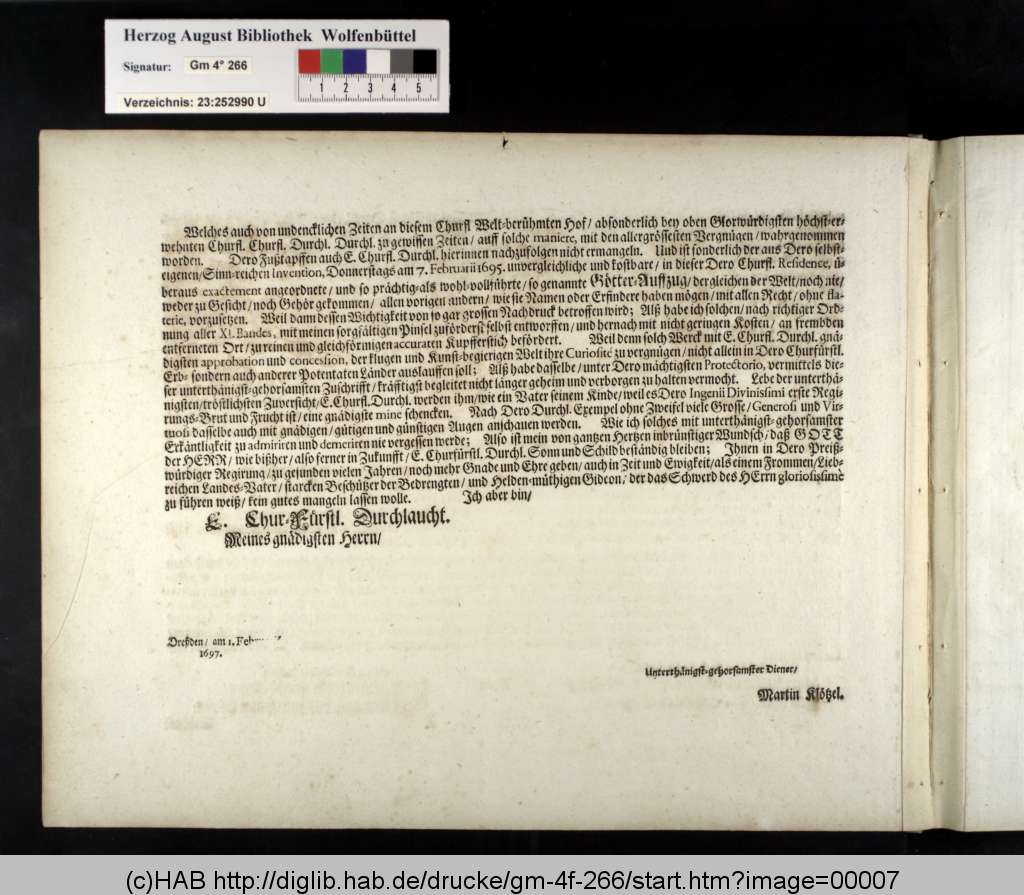 Herzog August Bibliothek Wolfenbüttel
Signatur: Gm 4° 266
1 2 3 4 5
Verzeichnis: 23:252990 U
Welches auch von undencklichen Zeiten an diesem Churfl Welt-berühmten Hof / absonderlich bey oben Glorwürdigsten höchst-er-
wehnten Churfl. Churfl. Durchl. Durchl. zu gewissen Zeiten / auff solche maniere, mit den allergrössesten Vergnügen / wahrgenommen
worden. Dero Fußtapffen auch E. Churfl. Durchl. hierinnen nachzufolgen nicht ermangeln. Und ist sonderlich der aus Dero selbst-
eigenen / Sinn-reichen Invention, Donnerstags am 7. Februarii 1695. unvergleichliche und kostbare / in dieser Dero Churfl. Residence, ü-
beraus exactement angeordnete / und so prächtig-als wohl-vollführte / so genannte Götter-Auffzug / dergleichen der Welt / noch nie /
weder zu Gesicht / noch Gehör gekommen / allen vorigen andern / wie sie Namen oder Erfindere haben mögen / mit allen Recht / ohne fla-
terie, vorzusetzen. Weil dann dessen Wichtigkeit von so gar grossen Nachdruck betroffen wird; Alß habe ich solchen / nach richtiger Ord-
nung aller XI. Bandes, mit meinen sorgfältigen Pinsel zuförderst selbst entworffen / und hernach mit nicht geringen Kosten / an frembden
entferneten Ort / zu reinen und gleichförmigen accuraten Kupfferstich befördert. Weil denn solch Werck mit E. Churfl. Durchl. gnä-
digsten approbation und concession, der klugen und Kunst-begierigen Welt ihre Curiosité zu vergnügen / nicht allein in Dero Churfürstl.
Erb- sondern auch anderer Potentaten Länder auslauffen soll; Alß habe dasselbe / unter Dero mächtigsten Protectorio, vermittels die-
ser unterthänigst-gehorsamsten Zuschrifft / kräfftigst begleitet nicht länger geheim und verborgen zu halten vermocht. Lebe der unterthä-
nigsten / tröstlichsten Zuversicht / E. Churfl. Durchl. werden ihm / wie ein Vater seinem Kinde / weil es Dero Ingenii Divinissimi erste Regi-
rungs-Brut und Frucht ist / eine gnädigste mine schencken. Nach Dero Durchl. Exempel ohne Zweifel viele Grosse / Generosi und Vir-
tuosi dasselbe auch mit gnädigen / gütigen und günstigen Augen anschauen werden. Wie ich solches mit unterthänigst-gehorsamster
Erkäntligkeit zu admiriren und demeriren nie vergessen werde; Also ist mein von gantzen Hertzen inbrünstiger Wundsch / daß GOTT
der HERR / wie bißher / also ferner in Zukunfft / E. Churfürstl. Durchl. Sonn und Schild beständig bleiben; Ihnen in Dero Preiß-
würdiger Regirung / zu gesunden vielen Jahren / noch mehr Gnade und Ehre geben / auch in Zeit und Ewigkeit / als einem Frommen / Lieb-
reichen Landes-Vater / starcken Beschützer der Bedrengten / und Helden-müthigen Gideon / der das Schwerd des HErrn gloriosissime
zu führen weiß / kein gutes mangeln lassen wolle. Ich aber bin /
E. Chur-Fürstl. Durchlaucht.
Meines gnädigsten Herrn /
Dreßden / am 1. Feb
1697.
Unterthänigst-gehorsamster Diener /
Martin Klötzel.
(c)HAB http://diglib.hab.de/drucke/gm-4f-266/start.htm?image=00007